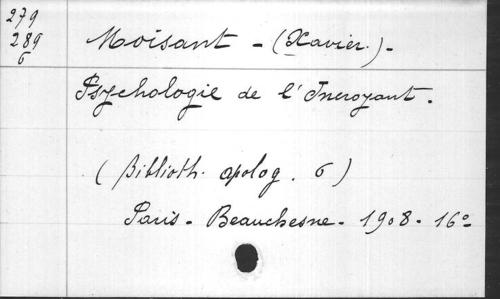 279
289
6
Moisant - (Xavier.) -
Psychologie de l'Incroyant.
(Biblioth. apolog. 6)
Paris - Beauchesne - 1908 - 16º